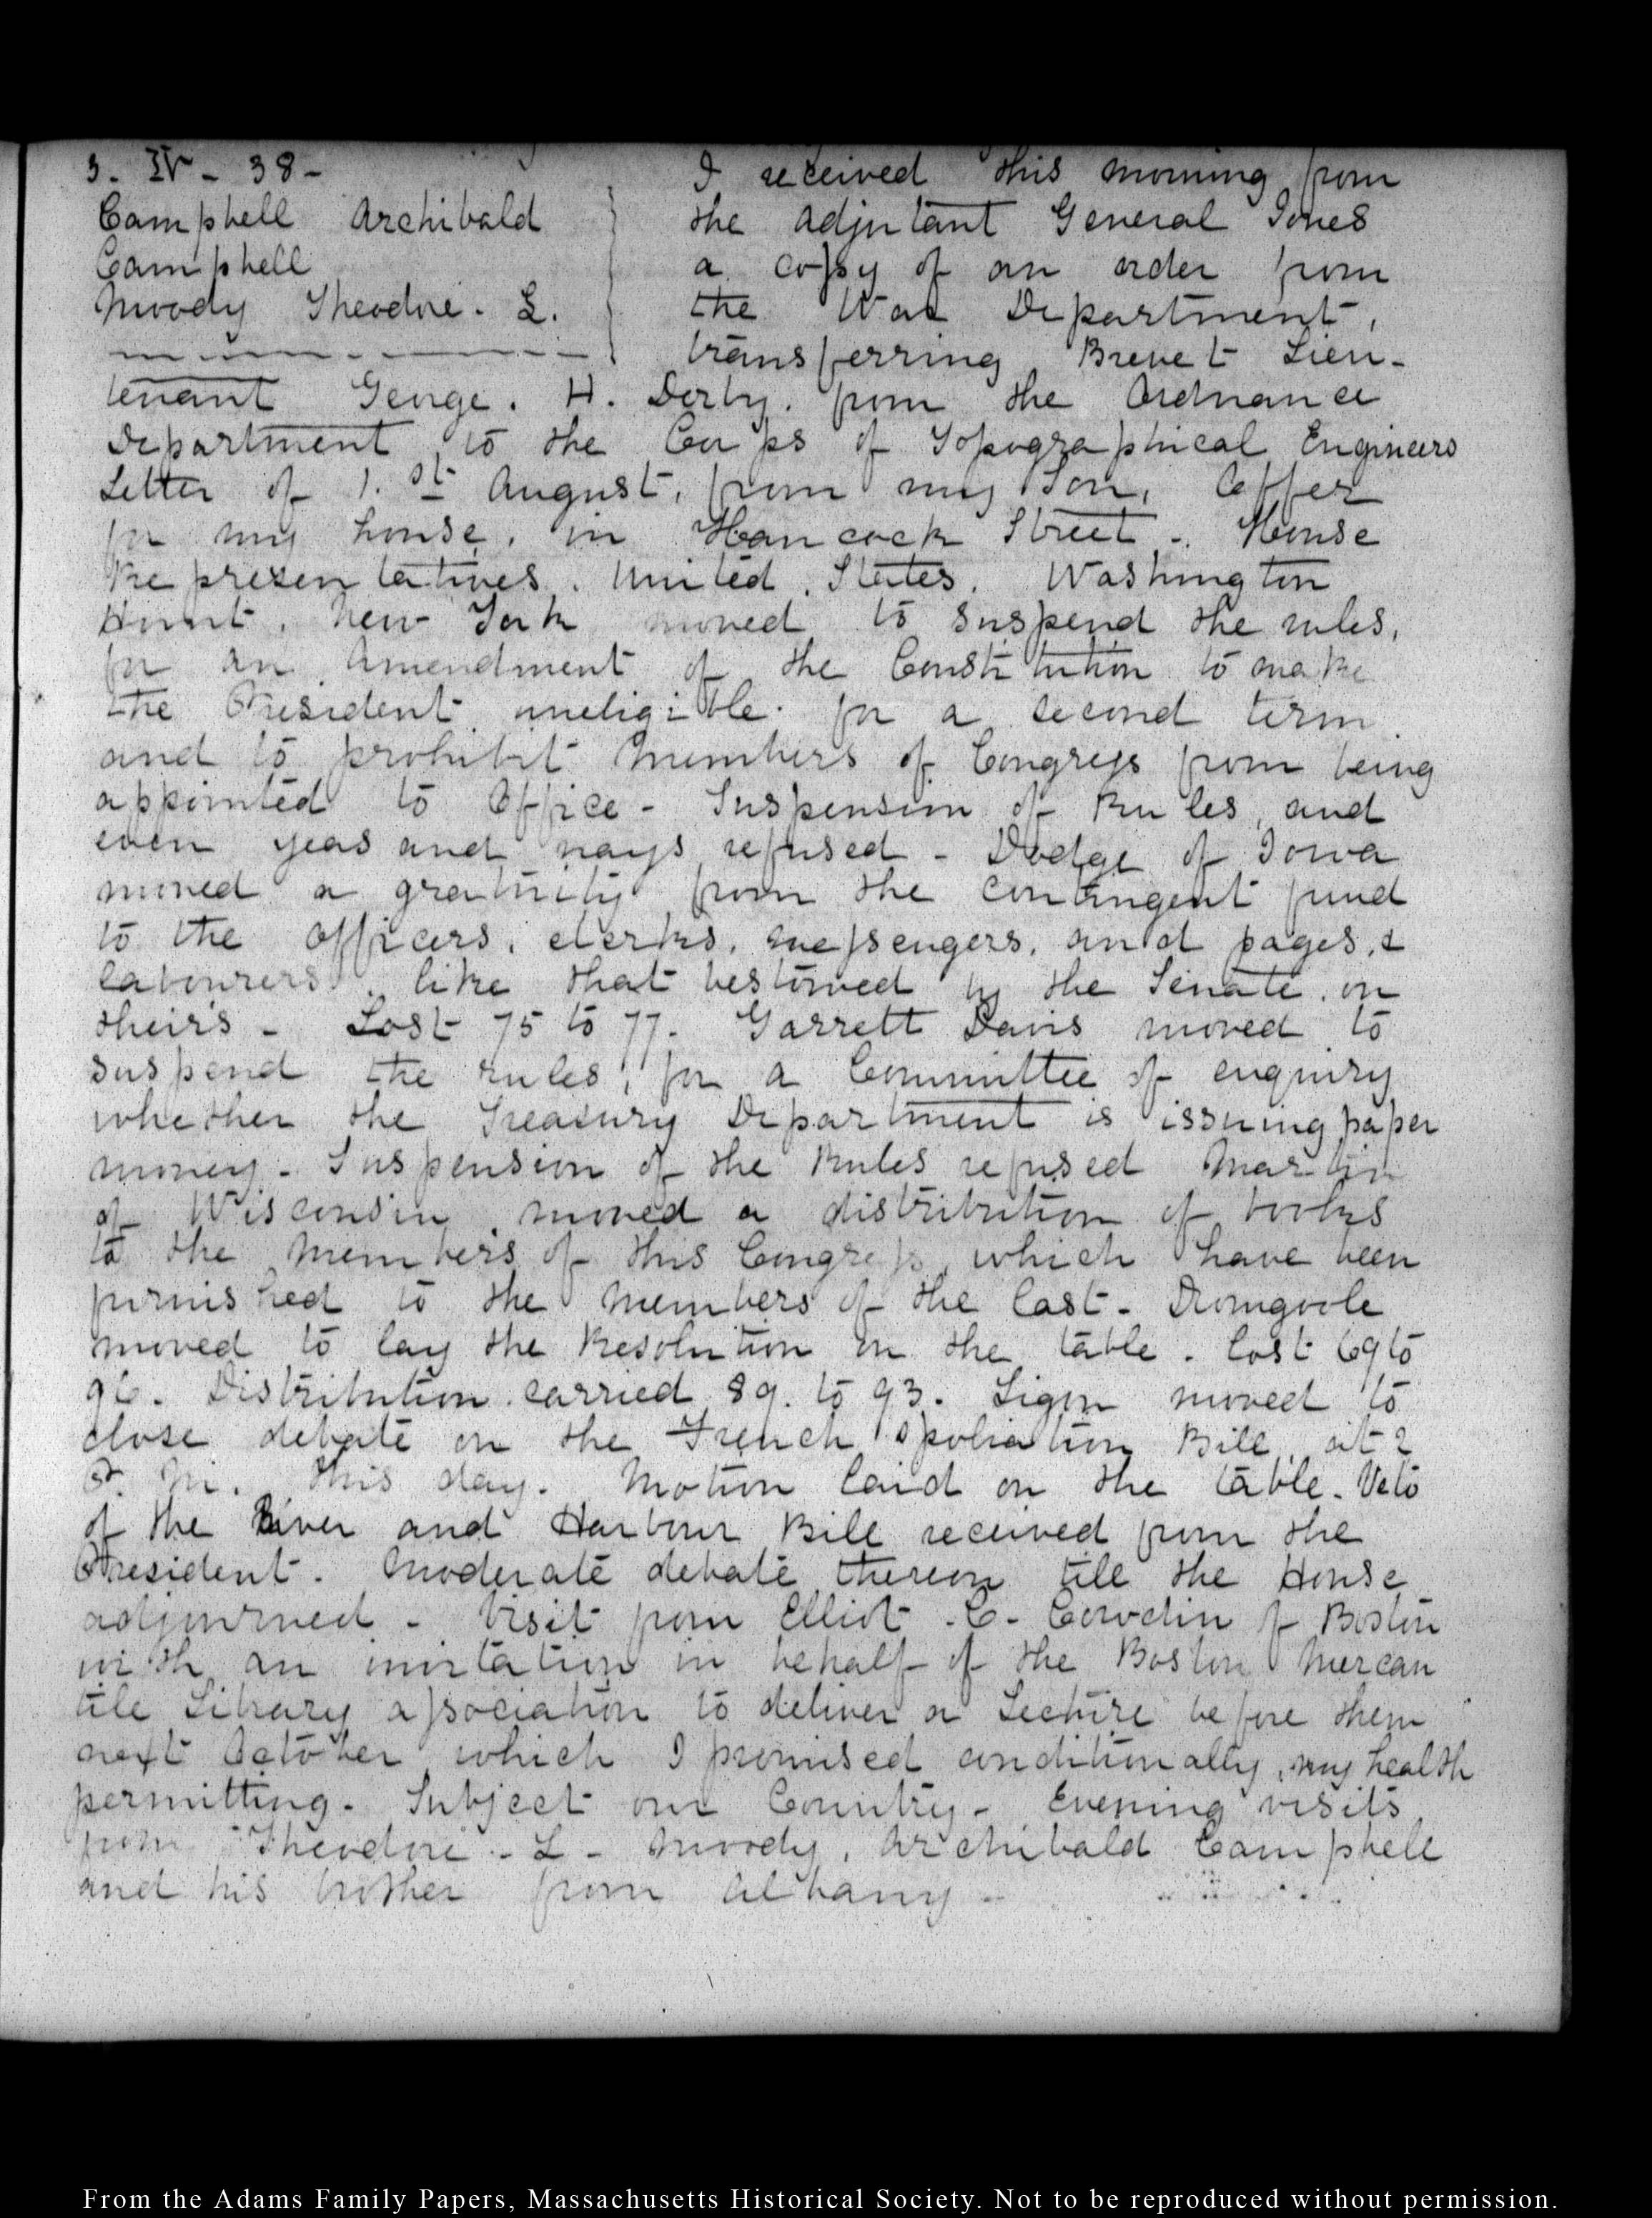 3. IV - 38 -
Campbell Archibald
Campbell
Moody Theodore. L.
I received this morning from
the Adjutant General Jones
a copy of an order from
the War Department,
transferring Brevet Lieu-
tenant George. H. Derby. from the Ordnance
Department, to the Corps of Topographical Engineers
Letter of 1.st August, from my Son,
for my house, in Hancock Street -. House
Representatives. United. States. Washington
Hunt. New York moved to suspend the rules,
for an Amendment of the Constitution to make
the President uneligible. for a second term
and to prohibit Members of Congress from being
appointed to Office - Suspension of Rules, and
even yeas and nays refused - Dodge of Iowa
moved a gratuity from the contingent fund
to the Officers, clerks, messengers, and pages, &
labourers, like that bestowed by the Senate, on
theirs - Lost 75 to 77. Garrett Davis moved to
suspend the rules, for a Committee of enquiry
whether the Treasury Department is issuing paper
money - Suspension of the Rules refused Martin
of Wisconsin, moved a distribution of books
to the Members of this Congress, which have been
furnished to the Members of the last - Dromgoole
moved to lay the Resolution on the table. lost 69 to
96. Distribution carried 89. to 93. Ligon moved to
close debate on the French spoliation Bill, at 2
P. M. this day. Motion laid on the table. Veto
of the River and Harbour Bill received from the
President. Moderate debate thereon till the House
adjourned - Visit from Elliot - C - Cowdin of Boston
with an invitation in behalf of the Boston Mercan
tile Library association to deliver a Lecture before them
next October which I promised conditionally, my health
permitting. Subject our Country - Evening visits
from Theodore - L - Moody, Archibald Campbell
and his brother from Albany -
From the Adams Family Papers, Massachusetts Historical Society. Not to be reproduced without permission.